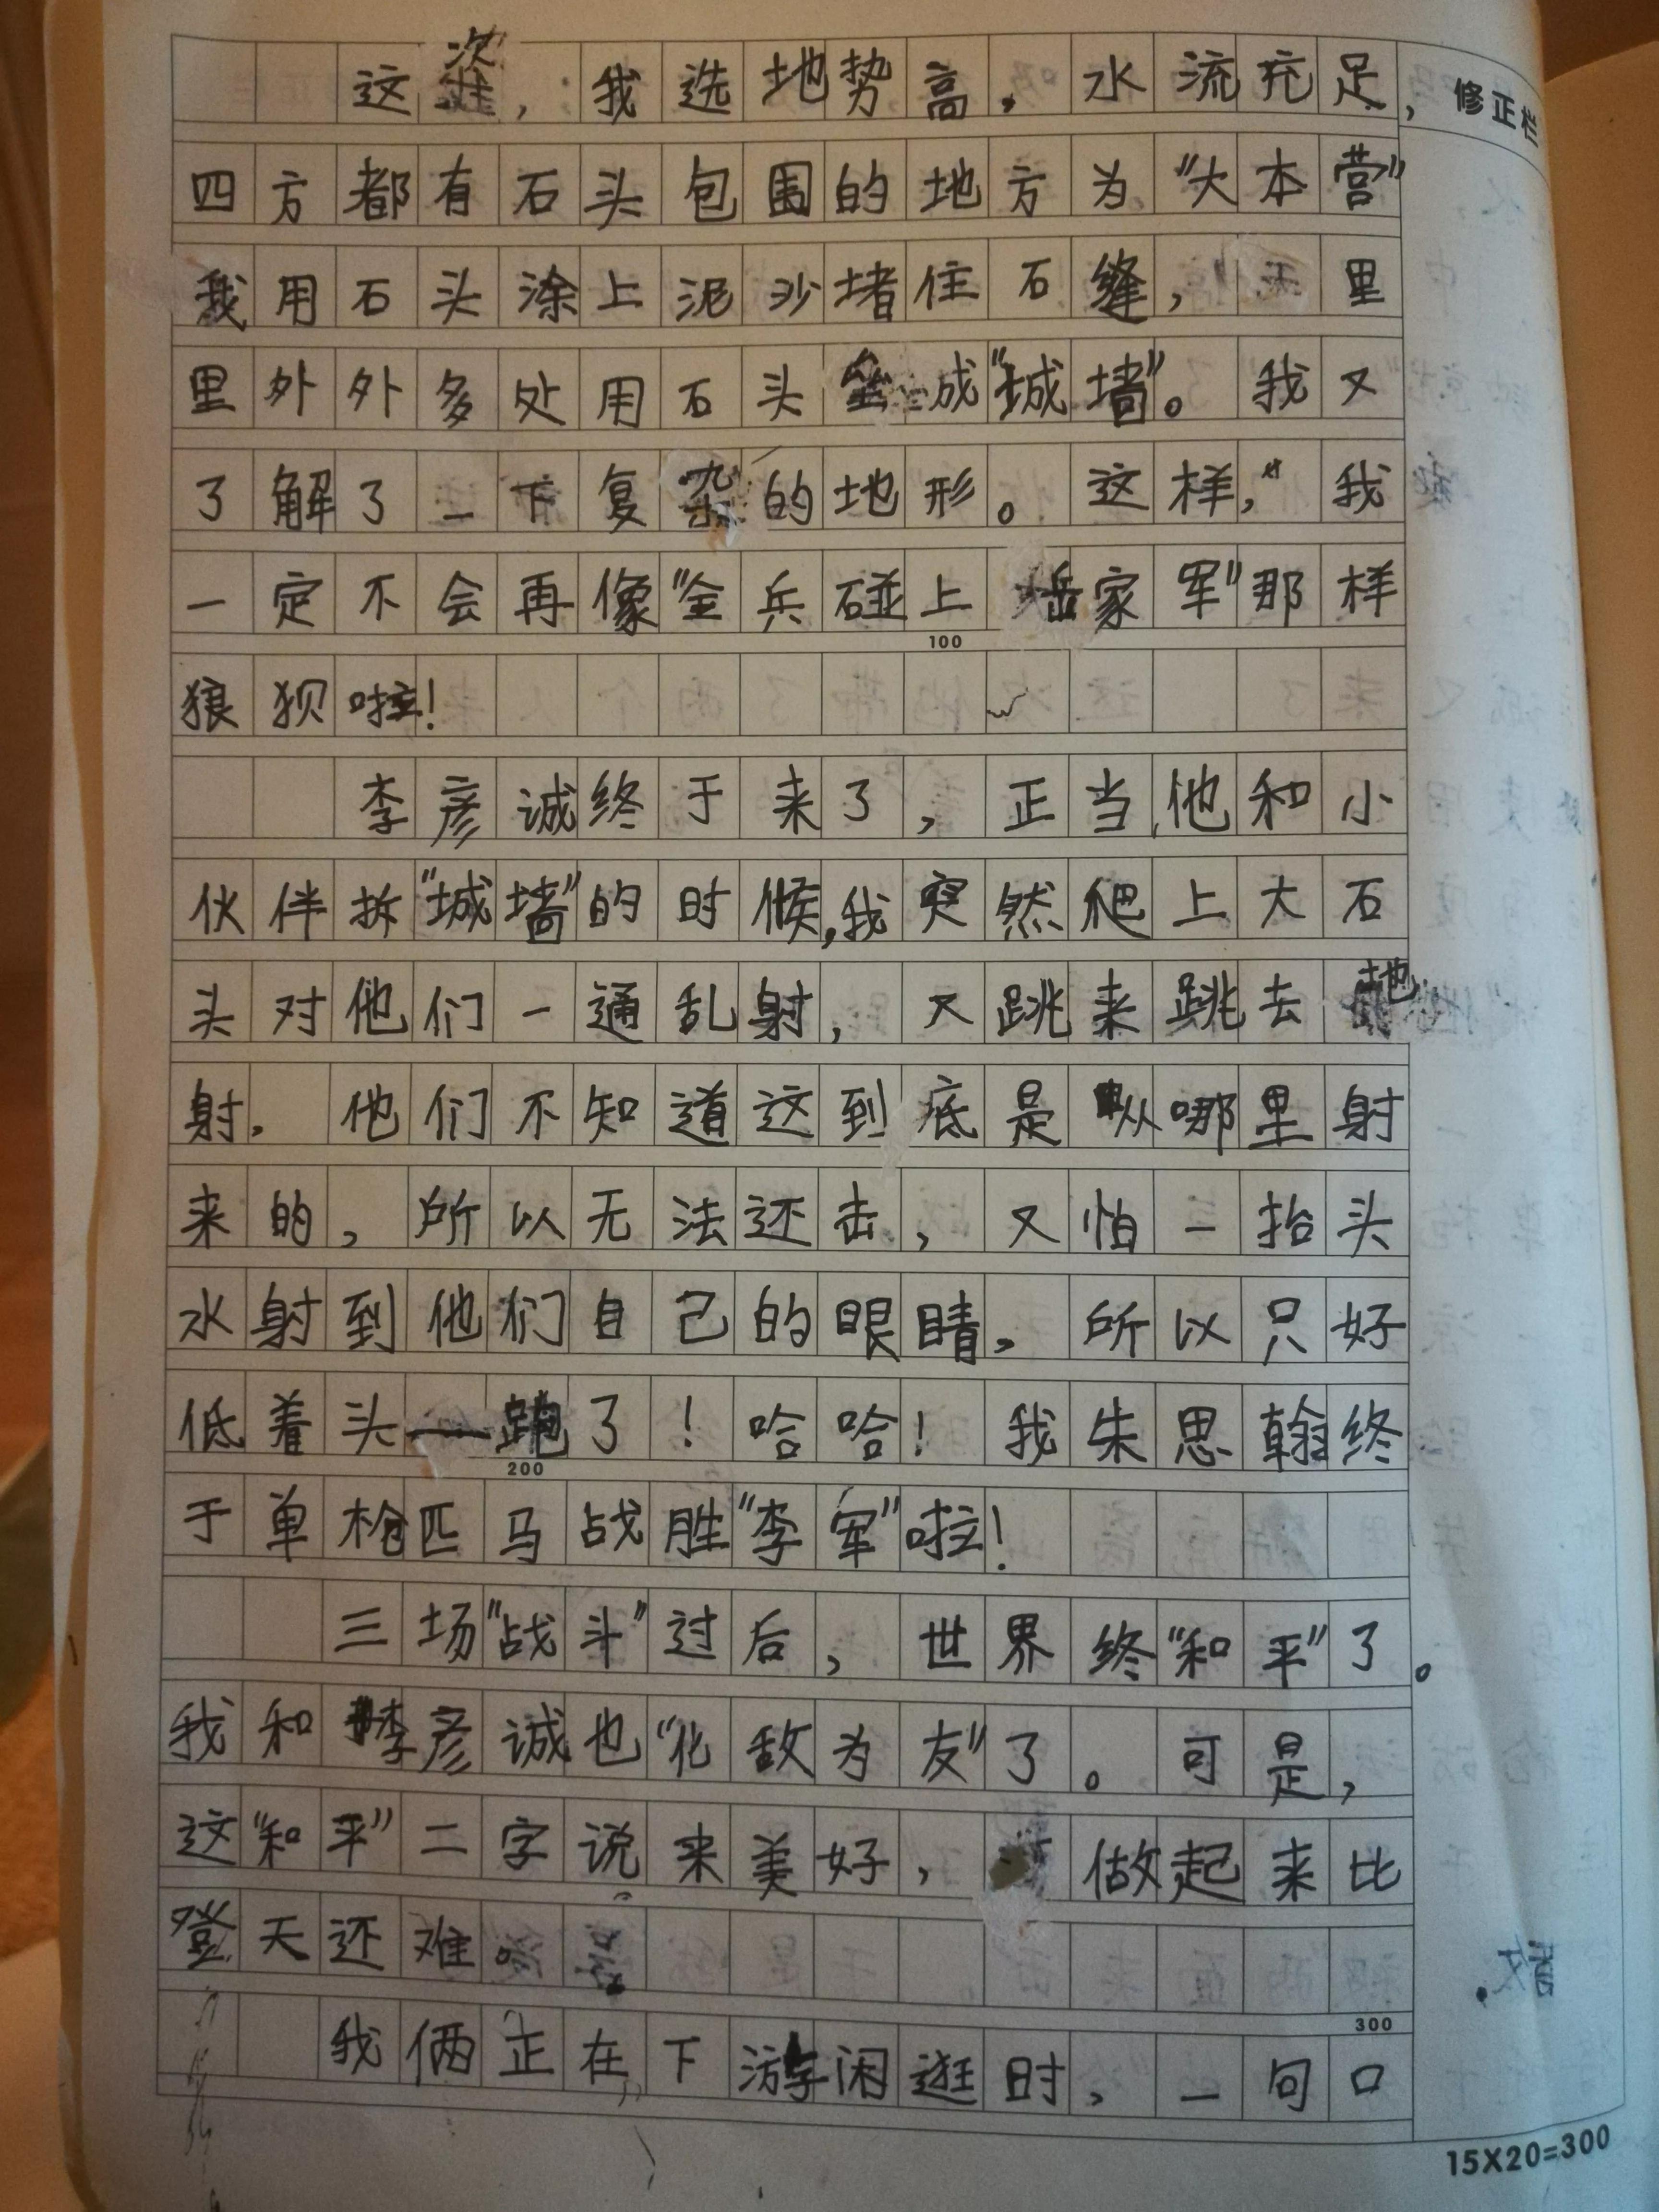 这次，我选地势高，水流充足，
修正栏
四方都有石头包围的地方为“大本营”
我用石头涂上泥沙堵住石缝，里
里外外多处用石头垒成“城墙”。我又
了解了一下复杂的地形。这样，我
一定不会再像“金兵碰上岳家军”那样
100
狼狈啦！
李彦诚终于来了，正当他和小
伙伴拆“城墙”的时候，我突然爬上大石
头对他们一通乱射，又跳来跳去地
射。他们不知道这到底是从哪里射
来的，所以无法还击，又怕一抬头
水射到他们自己的眼睛。所以只好
低着头——跑了！哈哈！我朱思翰终
200
于单枪匹马战胜“李军”啦！
三场“战斗”过后，世界终“和平”了。
我和李彦诚也“化敌为友”了。可是，
这“和平”二字说来美好，做起来比
登天还难。
300
我俩正在下游闲逛时，一句口
15X20=300